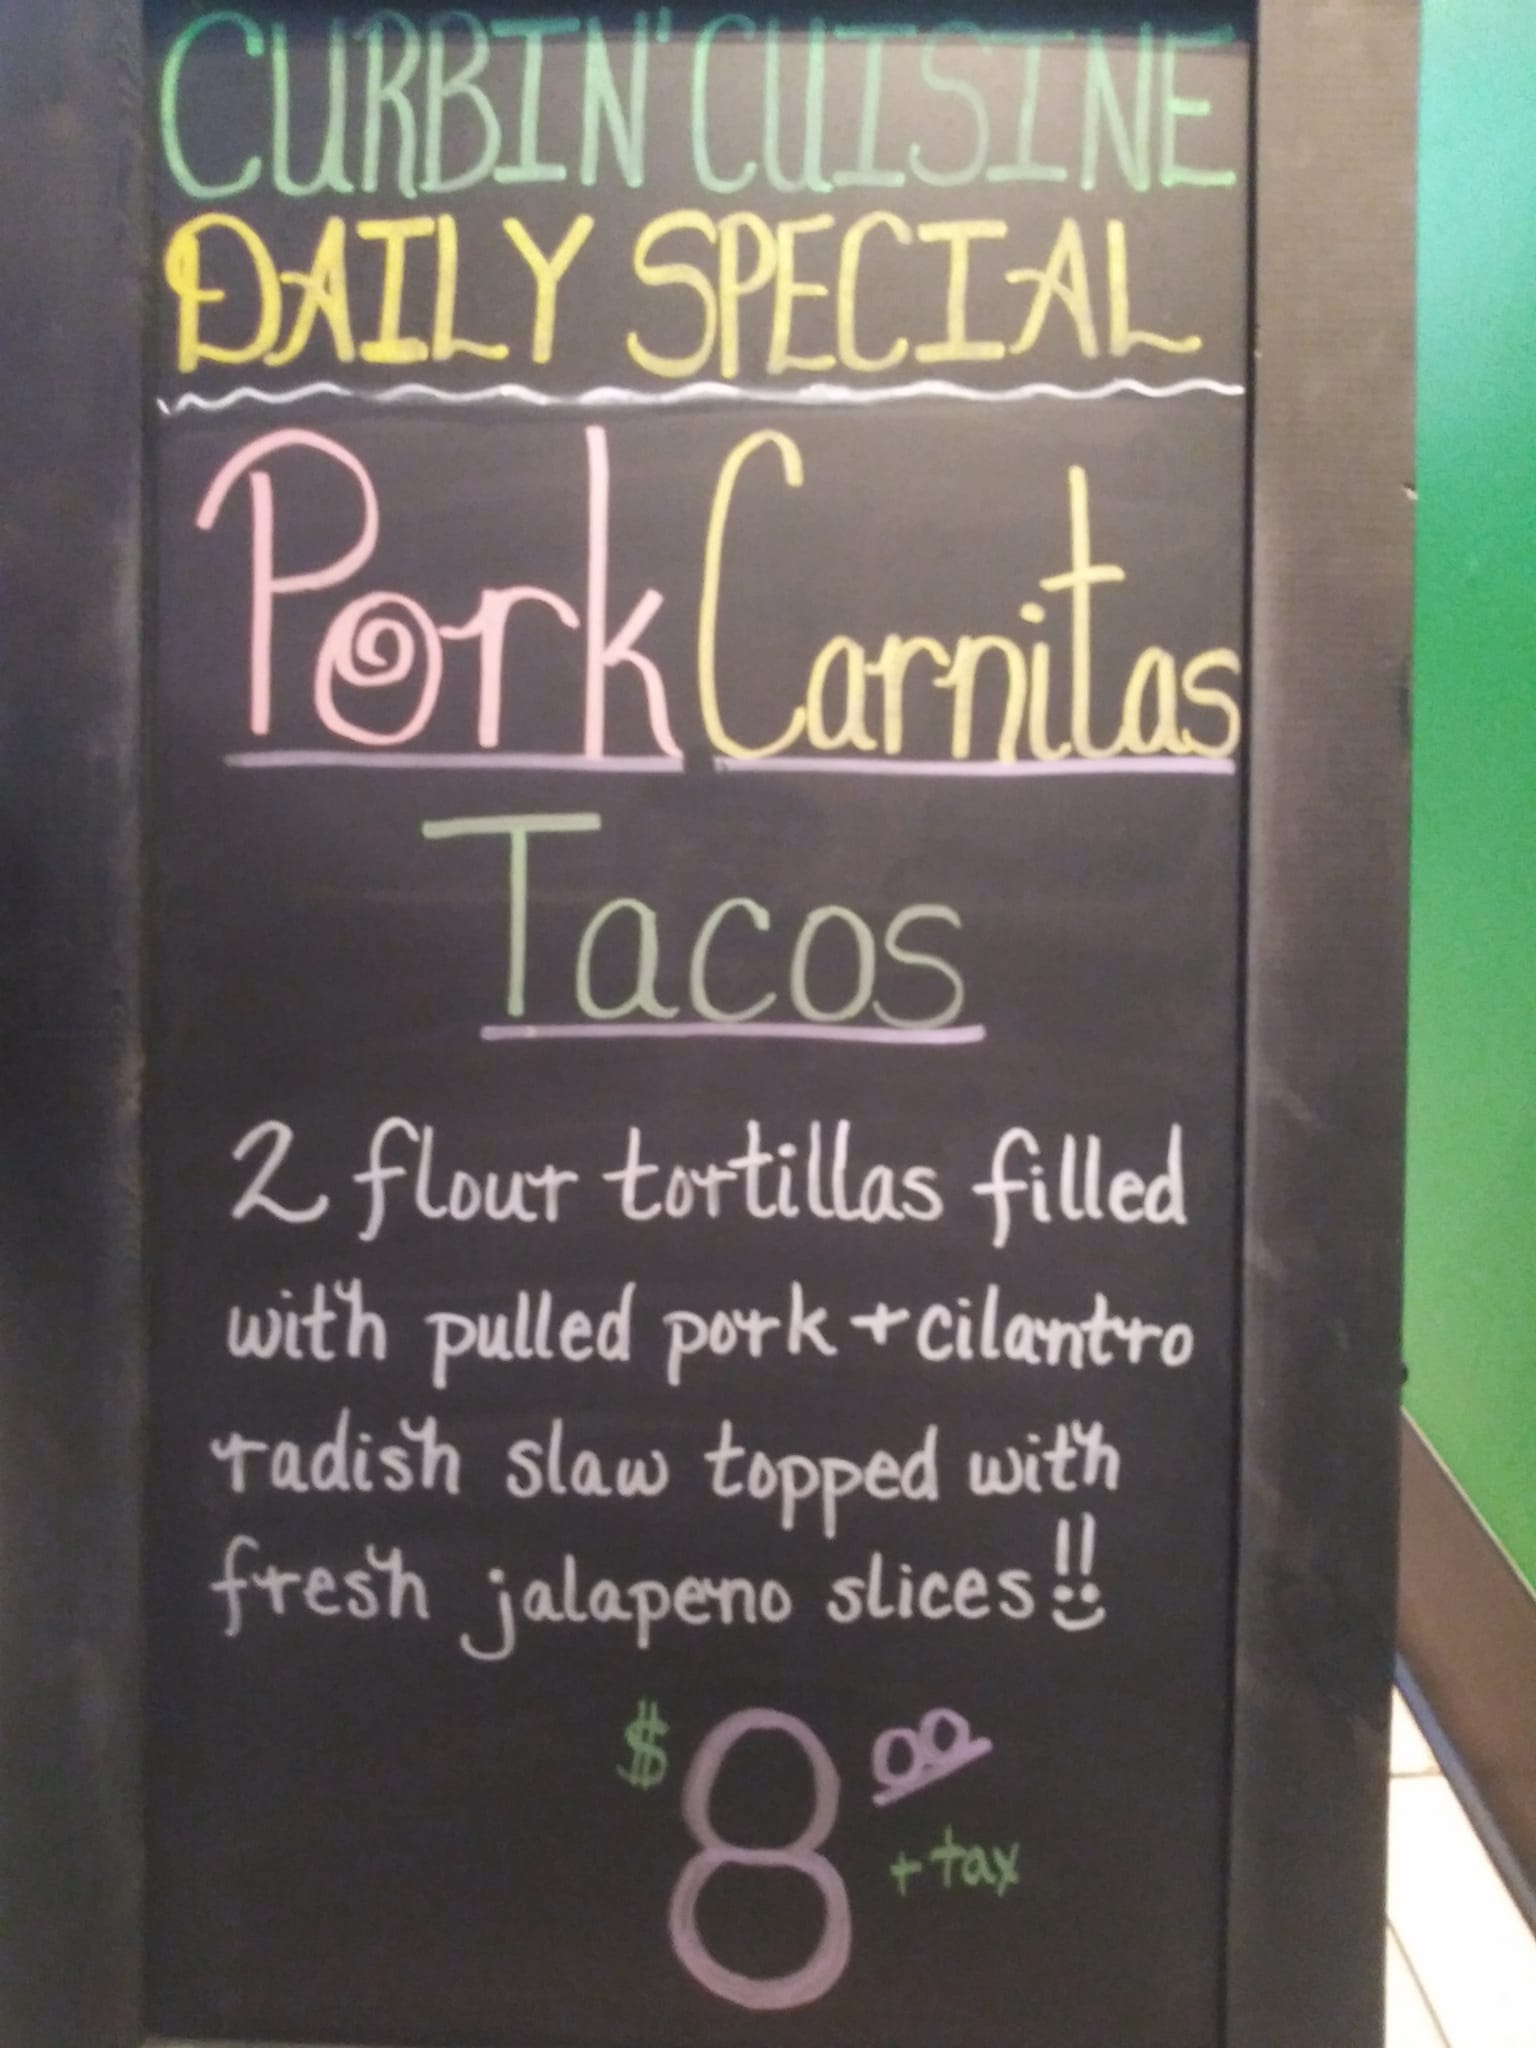 CURBIN' CUISINE
DAILY SPECIAL
Pork Carnitas
Tacos
2 flour tortillas filled
with pulled pork + cilantro
radish slaw topped with
fresh jalapeno slices!!
$8.00
+ tax